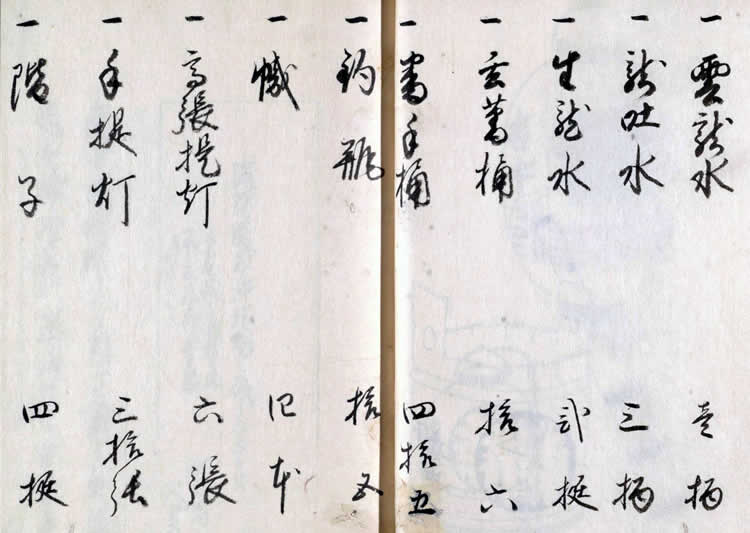 一 雲龍水 壱柄
一 龍吐水 三柄
一 生龍水 弐挺
一 玄蕃桶 拾六
一 番手桶 四拾五
一 釣瓶 拾五
一 幟 四本
一 高張提灯 六張
一 手提灯 三拾張
一 階子 四挺